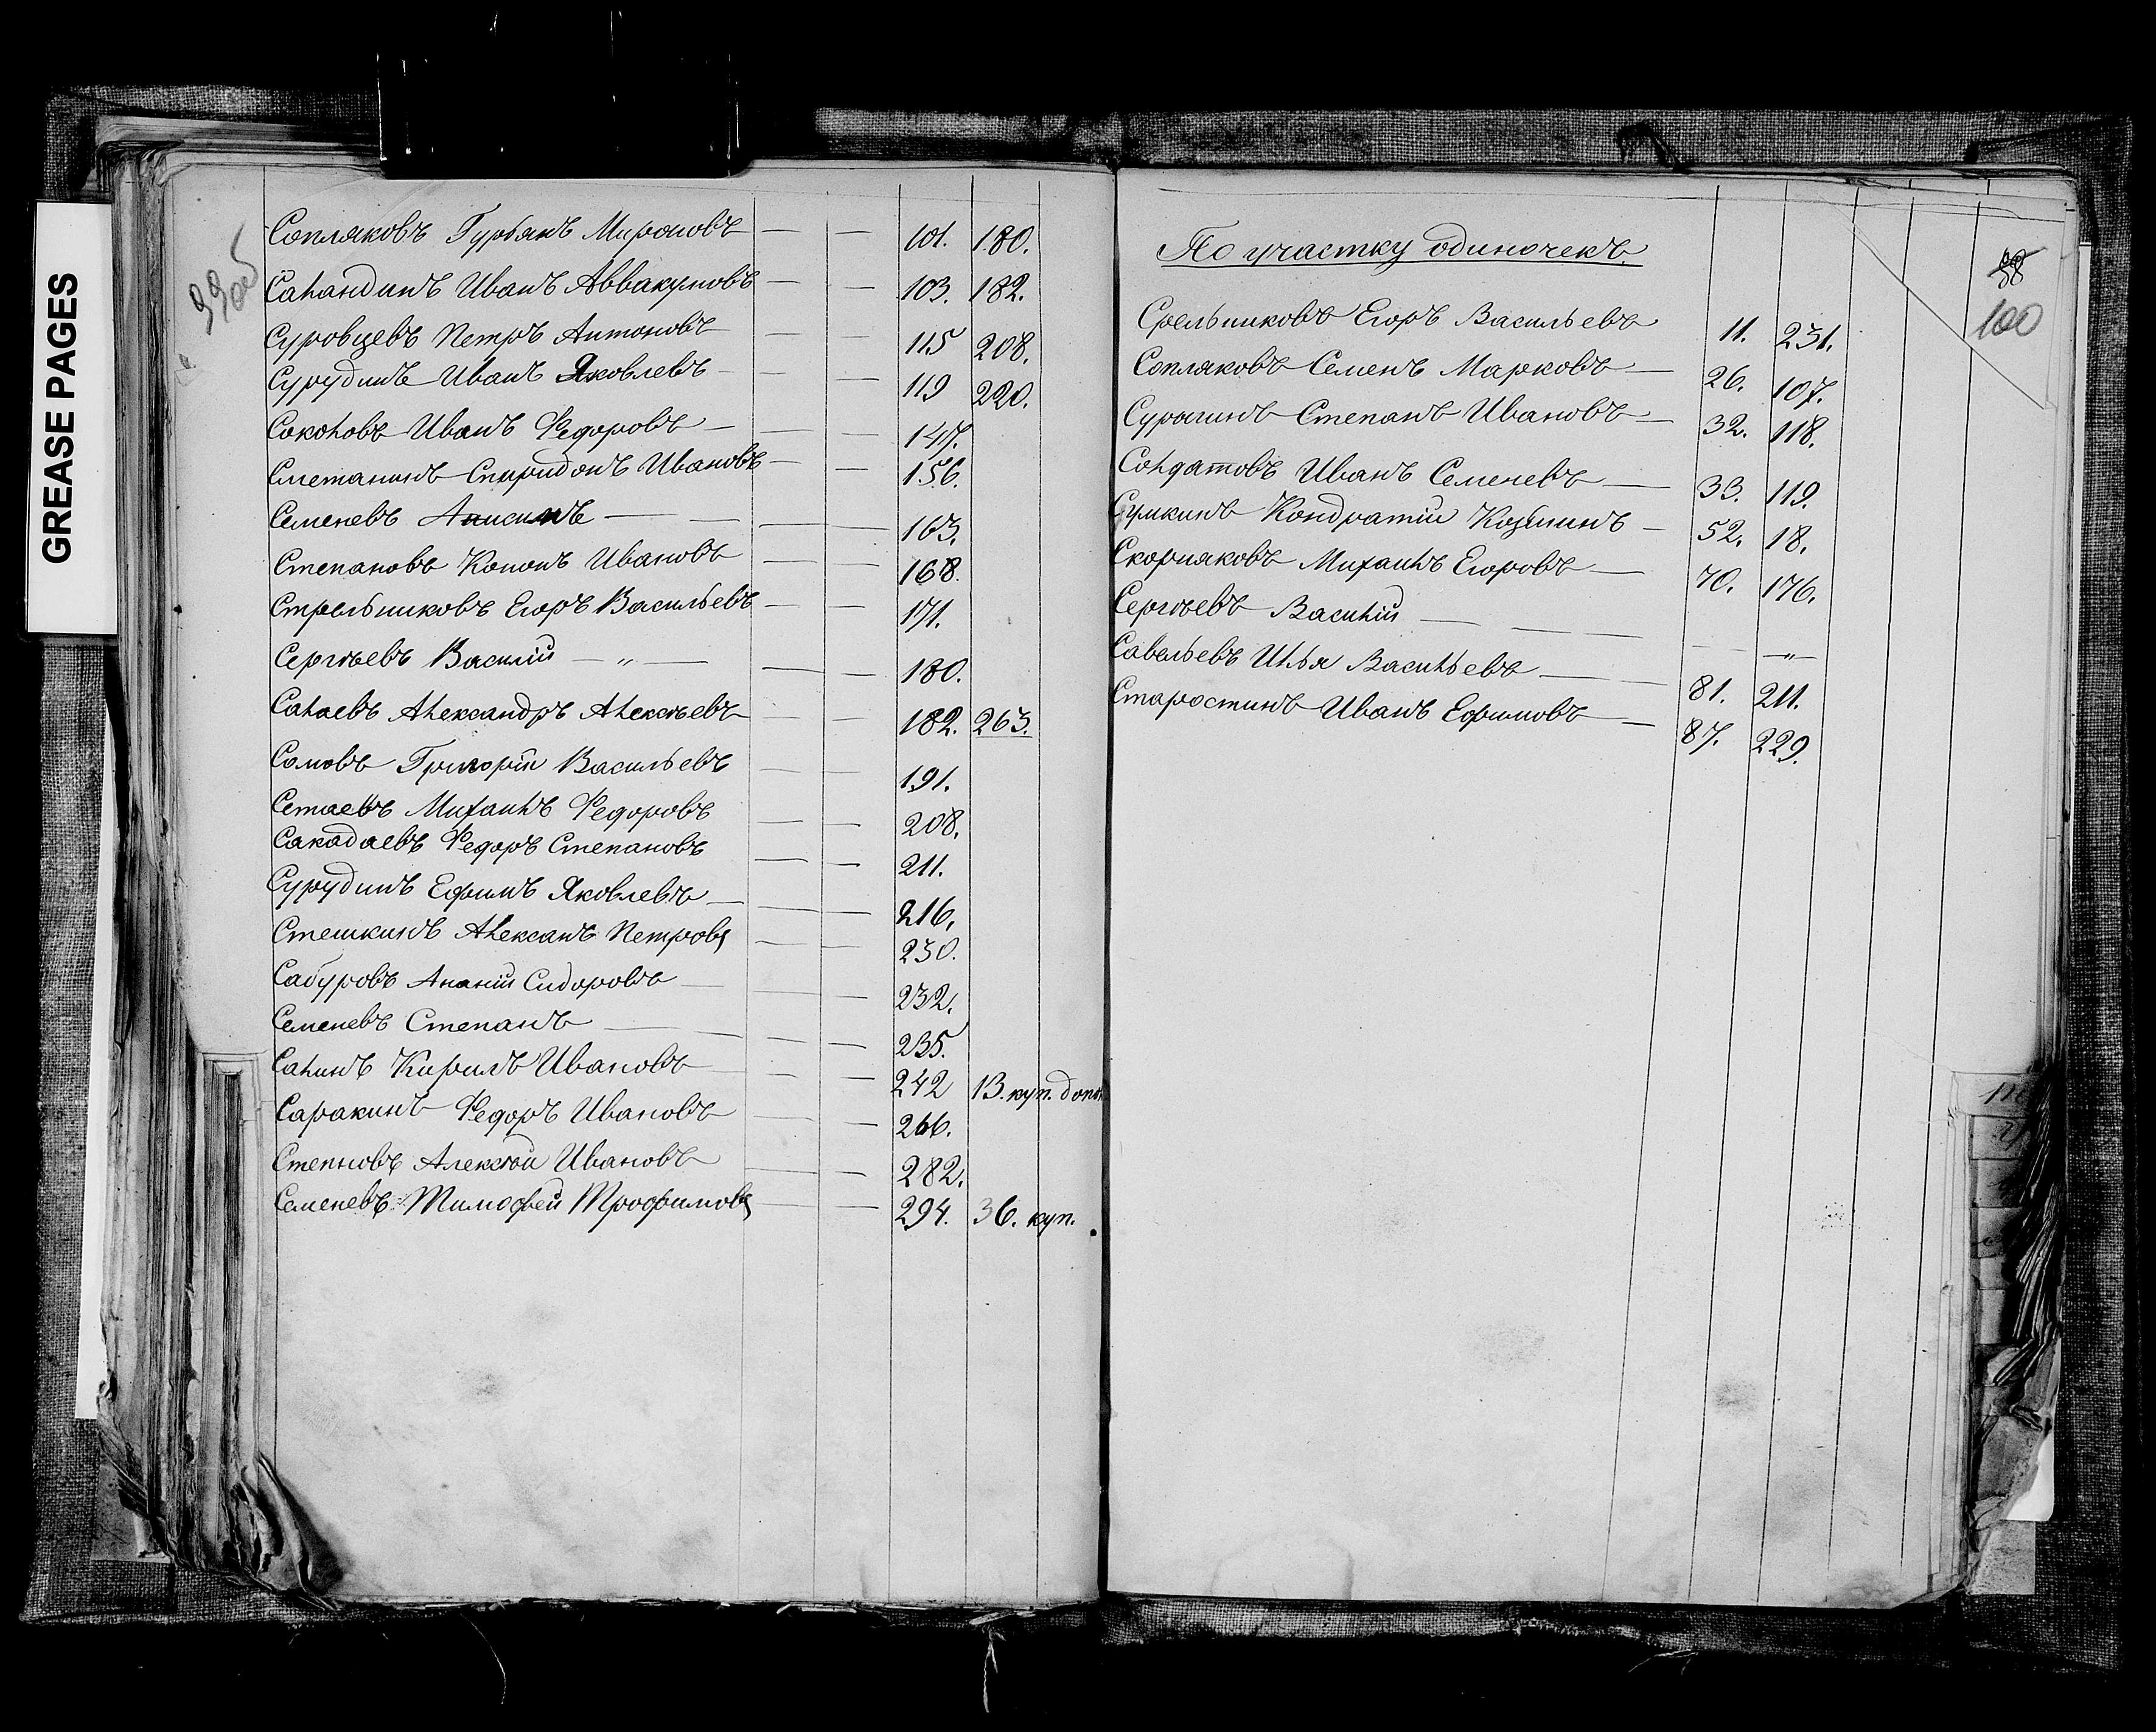 GREASE PAGES
99 об
Сопляковъ Гурьянъ Мироновъ — — 101. 180.
Саландинъ Иванъ Аввакумовъ — — 103. 182.
Суровцевъ Петръ Антоновъ — — 115 208.
Сурудинъ Иванъ Яковлевъ — — — 119 220.
Соколовъ Иванъ Федоровъ — — — 147.
Сметанинъ Спиридонъ Ивановъ — — 156.
Семеневъ Анисимъ — — — — 163.
Степановъ Кононъ Ивановъ — — 168.
Стрельниковъ Егоръ Васильевъ — — 171.
Сергѣевъ Василій — „ — — — 180.
Салаевъ Александръ Алексѣевъ — 182. 263.
Сомовъ Григорій Васильевъ — — 191.
Сетаевъ Михаилъ Федоровъ — — 208.
Сакадаевъ Федоръ Степановъ — — 211.
Сурудинъ Ефимъ Яковлевъ — — — 216.
Стешкинъ Алексанъ Петровъ — — 230.
Сабуровъ Ананій Сидоровъ — — — 232.
Семеневъ Степанъ — — — — 235.
Салинъ Кирилъ Ивановъ — — — 242 13. куп. доп.
Саракинъ Федоръ Ивановъ — — — 266.
Степновъ Алексѣй Ивановъ — — 282.
Семеневъ Тимофей Трофимовъ — — 294. 36. куп.
По участку одиночекъ
88
100
Срельниковъ Егоръ Васильевъ 11. 231.
Сопляковъ Семенъ Марковъ — 26. 107.
Сурагинъ Степанъ Ивановъ — 32. 118.
Солдатовъ Иванъ Семеневъ — 33. 119.
Сумкинъ Кондратій Козьминъ — 52. 18.
Скорняковъ Михаилъ Егоровъ — 70. 176.
Сергѣевъ Василій — — — — — „ —
Савельевъ Илья Васильевъ — — 81. 211.
Старостинъ Иванъ Ефимовъ — 87. 229.